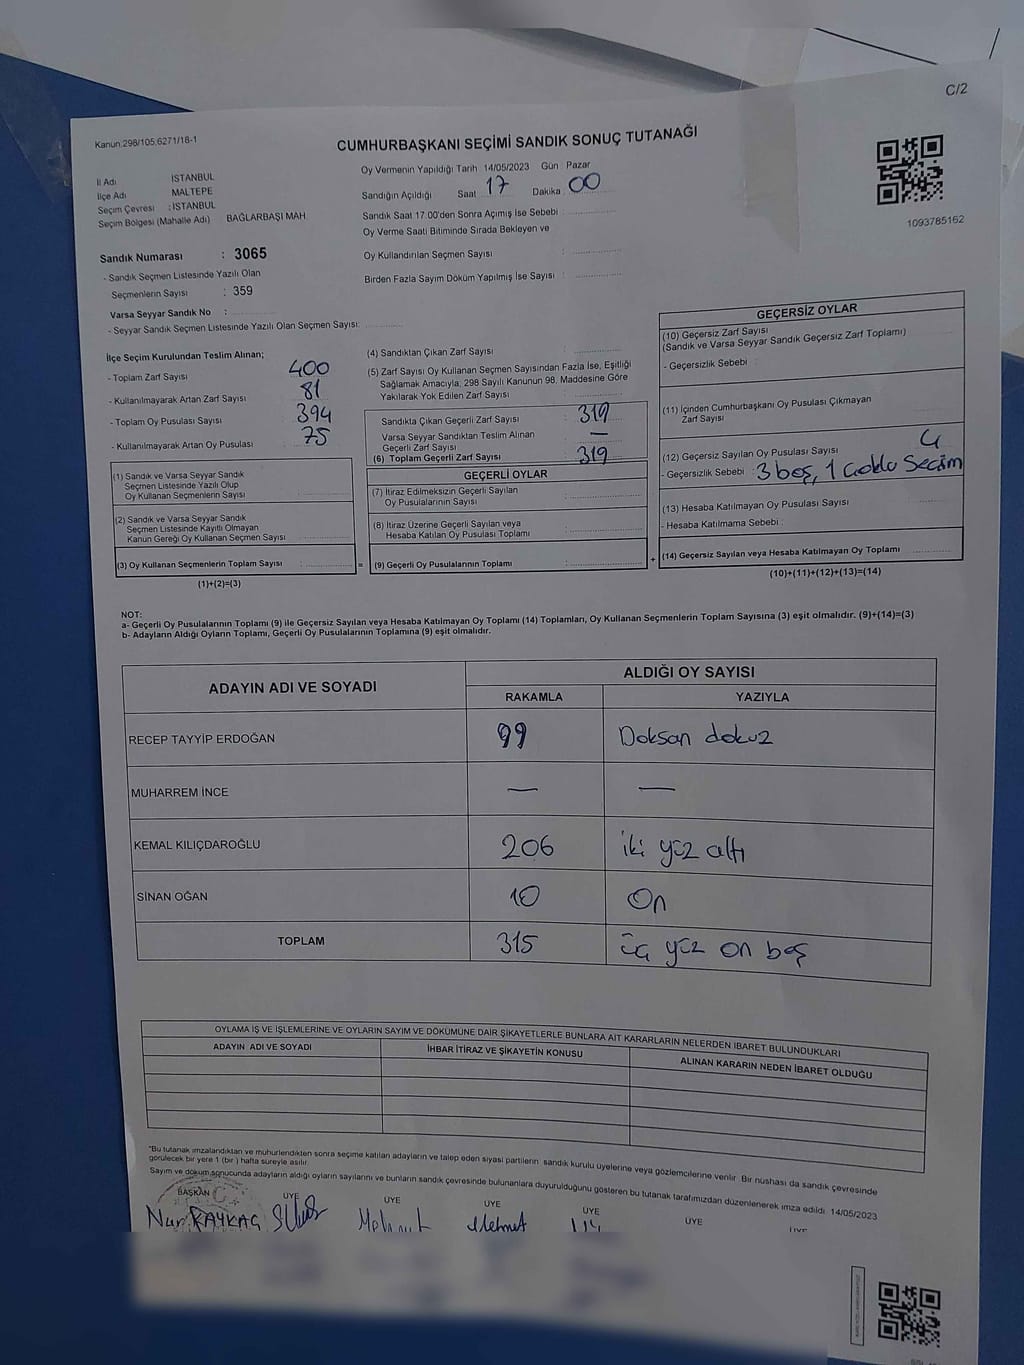 C/2
Kanun:298/105,6271/18-1
CUMHURBAŞKANI SEÇİMİ SANDIK SONUÇ TUTANAĞI
1093785162
İl Adı İSTANBUL
İlçe Adı MALTEPE
Seçim Çevresi : İSTANBUL
Seçim Bölgesi (Mahalle Adı) BAĞLARBAŞI MAH.
Sandık Numarası : 3065
- Sandık Seçmen Listesinde Yazılı Olan
Seçmenlerin Sayısı : 359
Varsa Seyyar Sandık No :
- Seyyar Sandık Seçmen Listesinde Yazılı Olan Seçmen Sayısı:
Oy Vermenin Yapıldığı Tarih 14/05/2023 Gün : Pazar
Sandığın Açıldığı Saat 17 Dakika 00
Sandık Saat 17.00'den Sonra Açımış İse Sebebi :
Oy Verme Saati Bitiminde Sırada Bekleyen ve
Oy Kullandırılan Seçmen Sayısı :
Birden Fazla Sayım Döküm Yapılmış İse Sayısı :
İlçe Seçim Kurulundan Teslim Alınan;
- Toplam Zarf Sayısı 400
- Kullanılmayarak Artan Zarf Sayısı 81
- Toplam Oy Pusulası Sayısı 394
- Kullanılmayarak Artan Oy Pusulası 75
(1) Sandık ve Varsa Seyyar Sandık
Seçmen Listesinde Yazılı Olup
Oy Kullanan Seçmenlerin Sayısı :
(2) Sandık ve Varsa Seyyar Sandık
Seçmen Listesinde Kayıtlı Olmayan
Kanun Gereği Oy Kullanan Seçmen Sayısı :
(3) Oy Kullanan Seçmenlerin Toplam Sayısı : =
(1)+(2)=(3)
(4) Sandıktan Çıkan Zarf Sayısı :
(5) Zarf Sayısı Oy Kullanan Seçmen Sayısından Fazla İse, Eşitliği
Sağlamak Amacıyla, 298 Sayılı Kanunun 98. Maddesine Göre
Yakılarak Yok Edilen Zarf Sayısı :
Sandıkta Çıkan Geçerli Zarf Sayısı : 319
Varsa Seyyar Sandıktan Teslim Alınan
Geçerli Zarf Sayısı : —
(6) Toplam Geçerli Zarf Sayısı : 319
GEÇERLİ OYLAR
(7) İtiraz Edilmeksizin Geçerli Sayılan
Oy Pusulalarının Sayısı :
(8) İtiraz Üzerine Geçerli Sayılan veya
Hesaba Katılan Oy Pusulası Toplamı :
(9) Geçerli Oy Pusulalarının Toplamı : +
GEÇERSİZ OYLAR
(10) Geçersiz Zarf Sayısı
(Sandık ve Varsa Seyyar Sandık Geçersiz Zarf Toplamı)
- Geçersizlik Sebebi :
(11) İçinden Cumhurbaşkanı Oy Pusulası Çıkmayan
Zarf Sayısı
(12) Geçersiz Sayılan Oy Pusulası Sayısı 4
- Geçersizlik Sebebi : 3 boş, 1 çoklu Seçim
(13) Hesaba Katılmayan Oy Pusulası Sayısı
- Hesaba Katılmama Sebebi :
(14) Geçersiz Sayılan veya Hesaba Katılmayan Oy Toplamı
(10)+(11)+(12)+(13)=(14)
NOT:
a- Geçerli Oy Pusulalarının Toplamı (9) ile Geçersiz Sayılan veya Hesaba Katılmayan Oy Toplamı (14) Toplamları, Oy Kullanan Seçmenlerin Toplam Sayısına (3) eşit olmalıdır. (9)+(14)=(3)
b- Adayların Aldığı Oyların Toplamı, Geçerli Oy Pusulalarının Toplamına (9) eşit olmalıdır.
ADAYIN ADI VE SOYADI ALDIĞI OY SAYISI
RAKAMLA YAZIYLA
RECEP TAYYİP ERDOĞAN 99 Doksan dokuz
MUHARREM İNCE — —
KEMAL KILIÇDAROĞLU 206 iki yüz altı
SİNAN OĞAN 10 On
TOPLAM 315 üç yüz on beş
OYLAMA İŞ VE İŞLEMLERİNE VE OYLARIN SAYIM VE DÖKÜMÜNE DAİR ŞİKAYETLERLE BUNLARA AİT KARARLARIN NELERDEN İBARET BULUNDUKLARI
ADAYIN ADI VE SOYADI İHBAR İTİRAZ VE ŞİKAYETİN KONUSU ALINAN KARARIN NEDEN İBARET OLDUĞU
"Bu tutanak imzalandıktan ve mühürlendikten sonra seçime katılan adayların ve talep eden siyasi partilerin sandık kurulu üyelerine veya gözlemcilerine verilir. Bir nüshası da sandık çevresinde
görülecek bir yere 1 (bir) hafta süreyle asılır.
Sayım ve döküm sonucunda adayların aldığı oyların sayılarını ve bunların sandık çevresinde bulunanlara duyurulduğunu gösteren bu tutanak tarafımızdan düzenlenerek imza edildi. 14/05/2023
BAŞKAN ÜYE ÜYE ÜYE ÜYE ÜYE ÜYE
Nur KAYKAÇ Mehmet